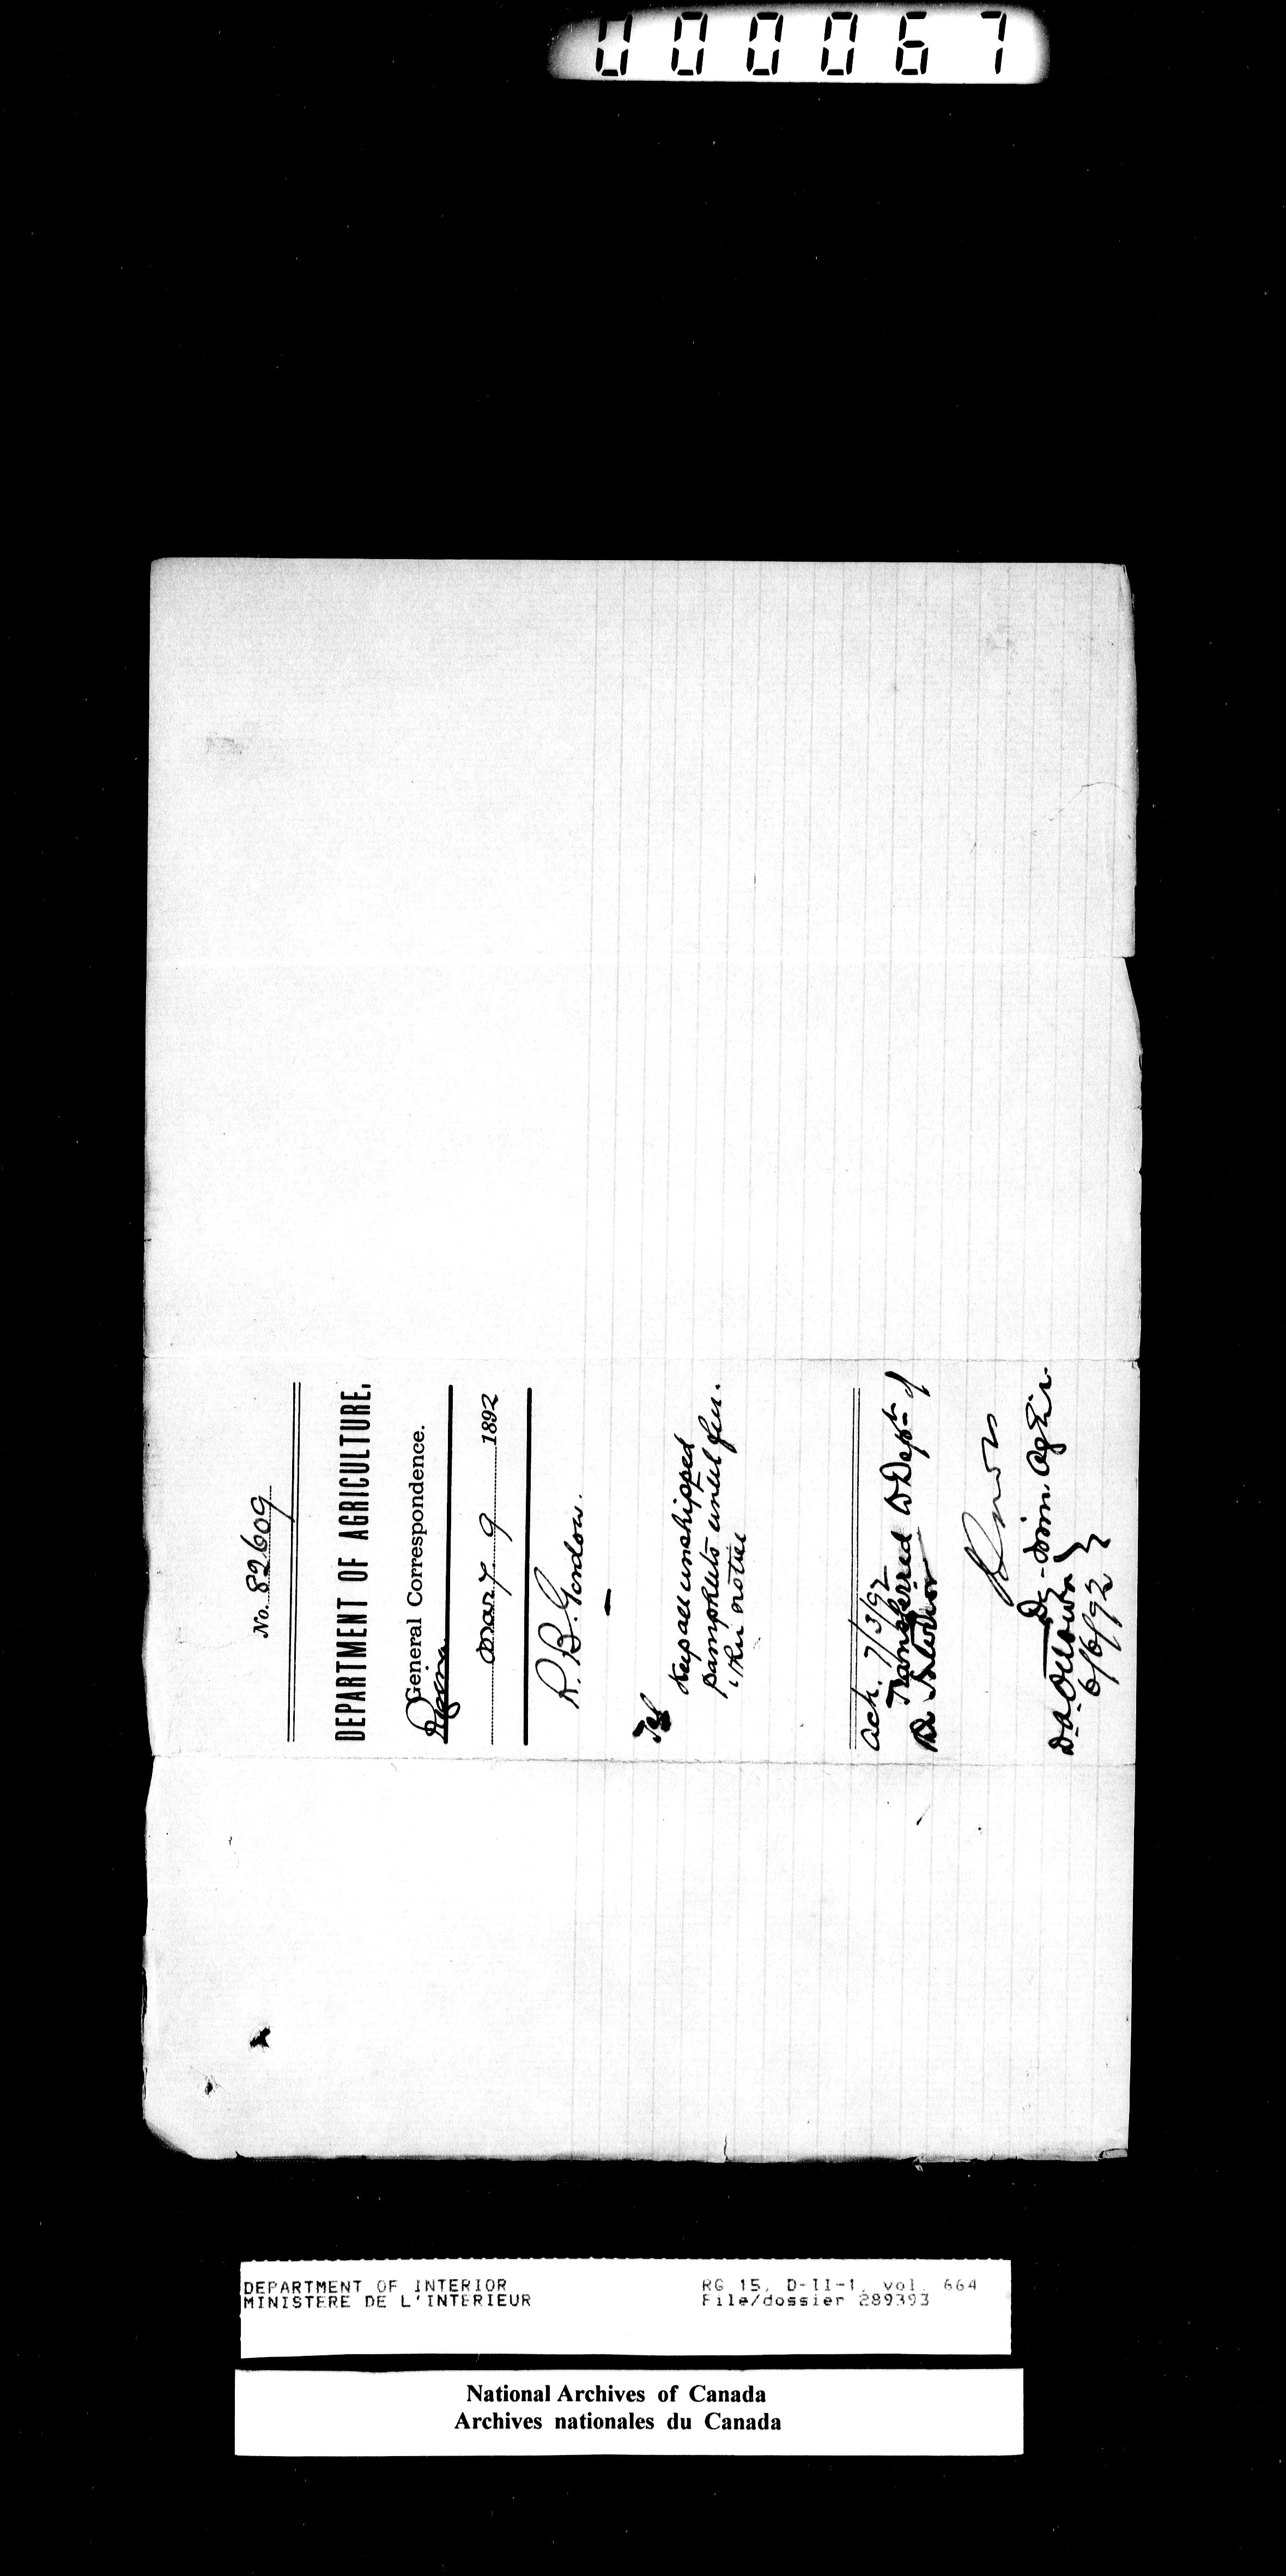 000067
No. 82609
DEPARTMENT OF AGRICULTURE.
General Correspondence.
Regina
Mar 7 9 1892
R. B. Gordon.
Tel
Keep all unshipped
pamphlets until fur.
ther notice
Ack. 7/3/92
Transferred to Dept of
the Interior
D of A Ottawa }
6/6/92 }
DEPARTMENT OF INTERIOR
MINISTERE DE L'INTERIEUR
RG 15, D-II-1, vol. 664
File/dossier 289393
National Archives of Canada
Archives nationales du Canada